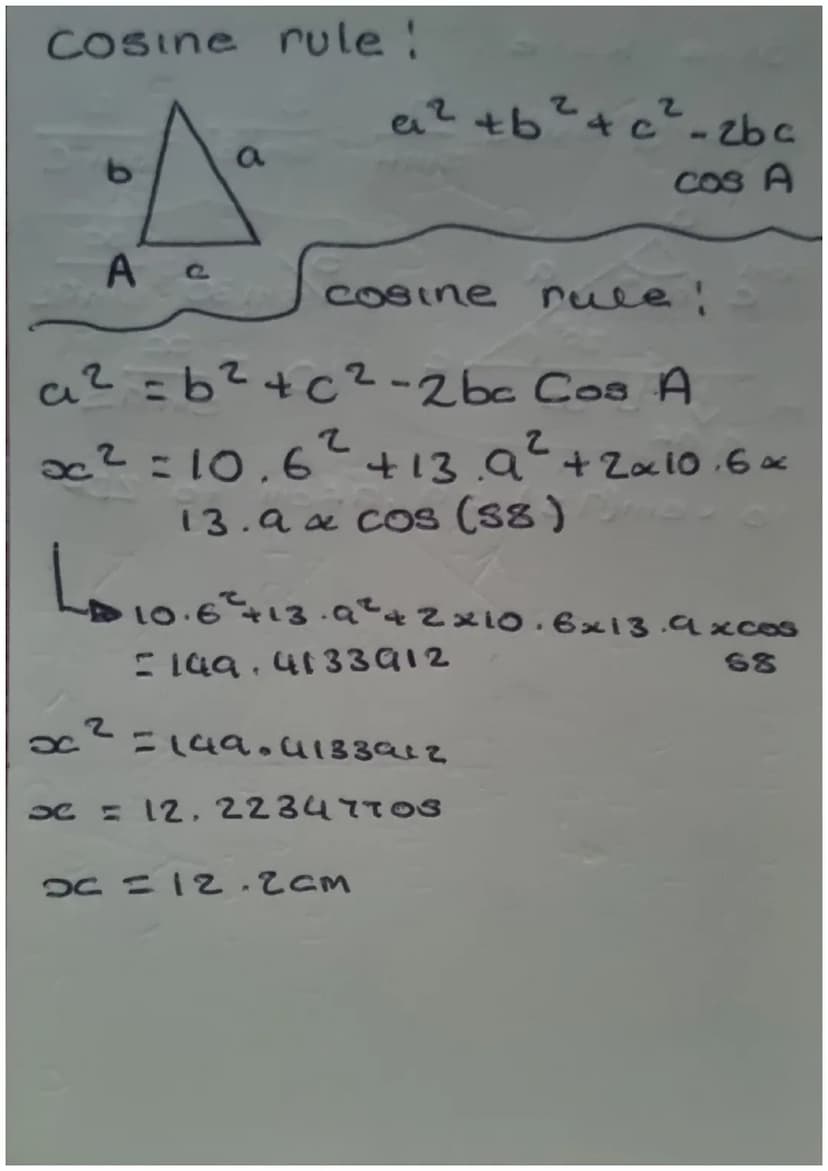 cosine rule!
a² + b² + c² - 2bc
cos A
b
a
A
c
cosine rule!
a² = b² + c² - 2bc Cos A
x² = 10.6² + 13.9² + 2 x 10.6 x
13.9 x cos (58)
10.6² + 13.9² + 2 x 10.6 x 13.9 x cos
58
= 149.4133912
x² = 149.4133912
x = 12.22347705
x = 12.2cm